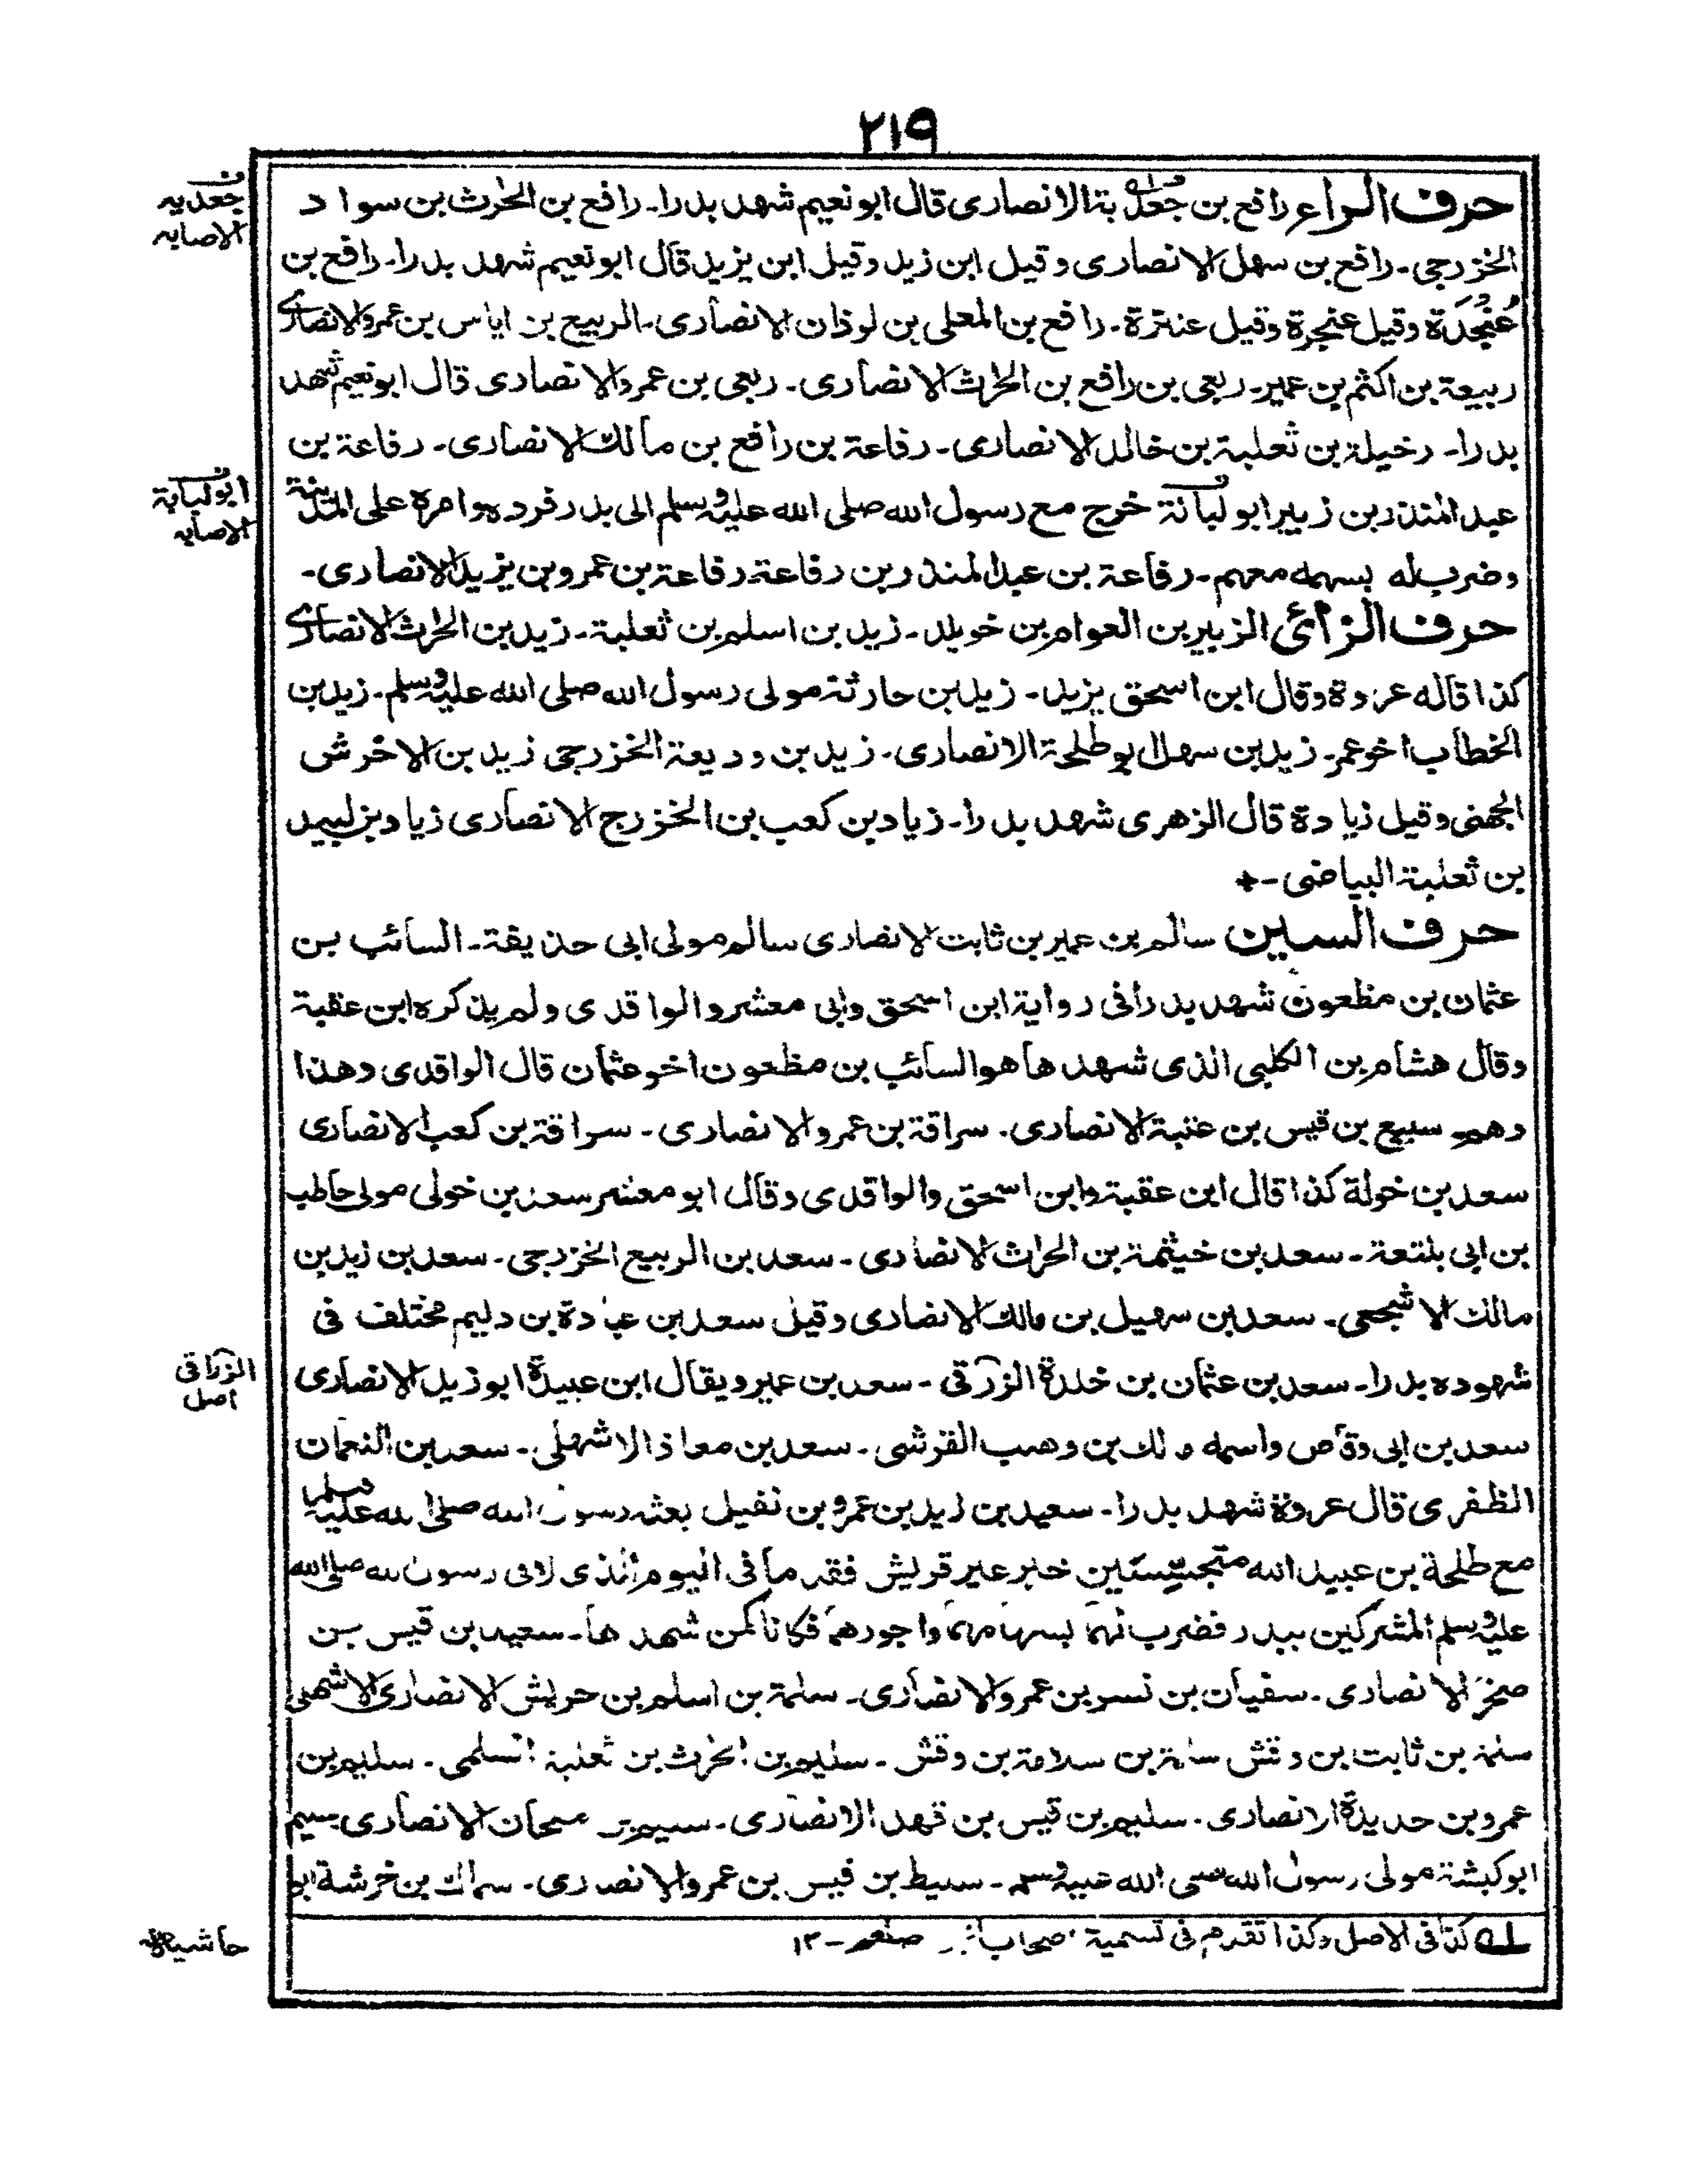 ٢١٩
حرف الراء رافع بن جعل بة الانصاری قال ابو نعیم شهد بدرا۔ رافع بن الحٰرث بن سواد
الخزرجی۔ رافع بن سهل الانصاری وقیل ابن زید وقیل ابن یزید قال ابو نعیم شهد بدرا۔ رافع بن
عُنْجُدَة وقیل عنجرة وقیل عنترة۔ رافع بن المعلی بن لوذان الانصاری۔ الربیع بن ایاس بن عمرو الانصاری
ربیعة بن اکثم بن عمیر۔ ربعی بن رافع بن الحٰرث الانصاری۔ ربعی بن عمرو الانصاری قال ابو نعیم شهد
بدرا۔ رخیلة بن ثعلبة بن خالد الانصاری۔ رفاعة بن رافع بن مالك الانصاری۔ رفاعة بن
عبد المنذر بن زبیر ابو لبانة خرج مع رسول الله صلی الله علیه وسلم الی بدر فرده وامره علی المدینة
وضرب له بسهمه معهم۔ رفاعة بن عبد المنذر بن رفاعة۔ رفاعة بن عمرو بن یزید الانصاری۔
حرف الزائ الزبیر بن العوام بن خویلد۔ زید بن اسلم بن ثعلبة۔ زید بن الحٰرث الانصاری
کذا قاله عروة وقال ابن اسحق یزید۔ زید بن حارثة مولی رسول الله صلی الله علیه وسلم۔ زید بن
الخطاب اخو عمر۔ زید بن سهل ابو طلحة الانصاری۔ زید بن ودیعة الخزرجی زید بن الاخرش
الجهنی وقیل زیادة قال الزهری شهد بدرا۔ زیاد بن کعب بن الخزرج الانصاری زیاد بن لبید
بن ثعلبة البیاضی۔
حرف السین سالم بن عمیر بن ثابت الانصاری سالم مولی ابی حذیفة۔ السائب بن
عثمان بن مظعون شهد بدرا فی روایة ابن اسحق وابی معشر والواقدی ولم یذکره ابن عقبة
وقال هشام بن الکلبی الذی شهدها هو السائب بن مظعون اخو عثمان قال الواقدی وهذا
وهم۔ سبیع بن قیس بن عتبة الانصاری۔ سراقة بن عمرو الانصاری۔ سراقة بن کعب الانصاری
سعد بن خولة کذا قال ابن عقبة وابن اسحق والواقدی وقال ابو معشر سعد بن خولی مولی حاطب
بن ابی بلتعة۔ سعد بن خیثمة بن الحٰرث الانصاری۔ سعد بن الربیع الخزرجی۔ سعد بن زید بن
مالك الاشجعی۔ سعد بن سهیل بن مالك الانصاری وقیل سعد بن عبادة بن دلیم مختلف فی
شهوده بدرا۔ سعد بن عثمان بن خلدة الزرقی۔ سعد بن عمیر ویقال ابن عبیدة ابو زید الانصاری
سعد بن ابی وقاص واسمه مالك بن وهب القرشی۔ سعد بن معاذ الاشهلی۔ سعد بن النعمان
الظفری قال عروة شهد بدرا۔ سعید بن زید بن عمرو بن نفیل بعثه رسول الله صلی الله علیه وسلم
مع طلحة بن عبید الله متجسسین خبر عیر قریش فقدما فی الیوم الذی لاقی رسول الله صلی الله
علیه وسلم المشرکین ببدر فضرب لهما بسهامهما واجورهما فکانا کمن شهدها۔ سعید بن قیس بن
صخر الانصاری۔ سفیان بن نسر بن عمرو الانصاری۔ سلمة بن اسلم بن حریش الانصاری الاشهلی
سلمة بن ثابت بن وقش سلمة بن سلامة بن وقش۔ سلیم بن الحٰرث بن ثعلبة السلمی۔ سلیم بن
عمرو بن حدیدة الانصاری۔ سلیم بن قیس بن قهد الانصاری۔ سلیم بن ملحان الانصاری سلیم
ابو کبشة مولی رسول الله صلی الله علیه وسلم۔ سلیط بن قیس بن عمرو الانصاری۔ سماك بن خرشة ابو
لـه کذا فی الاصل وکذا تقدم فی تسمیة اصحاب ١٣
جعدبه
الاصابه
ابو لبابة
الاصابه
الزراقی
اصل
حاشیه